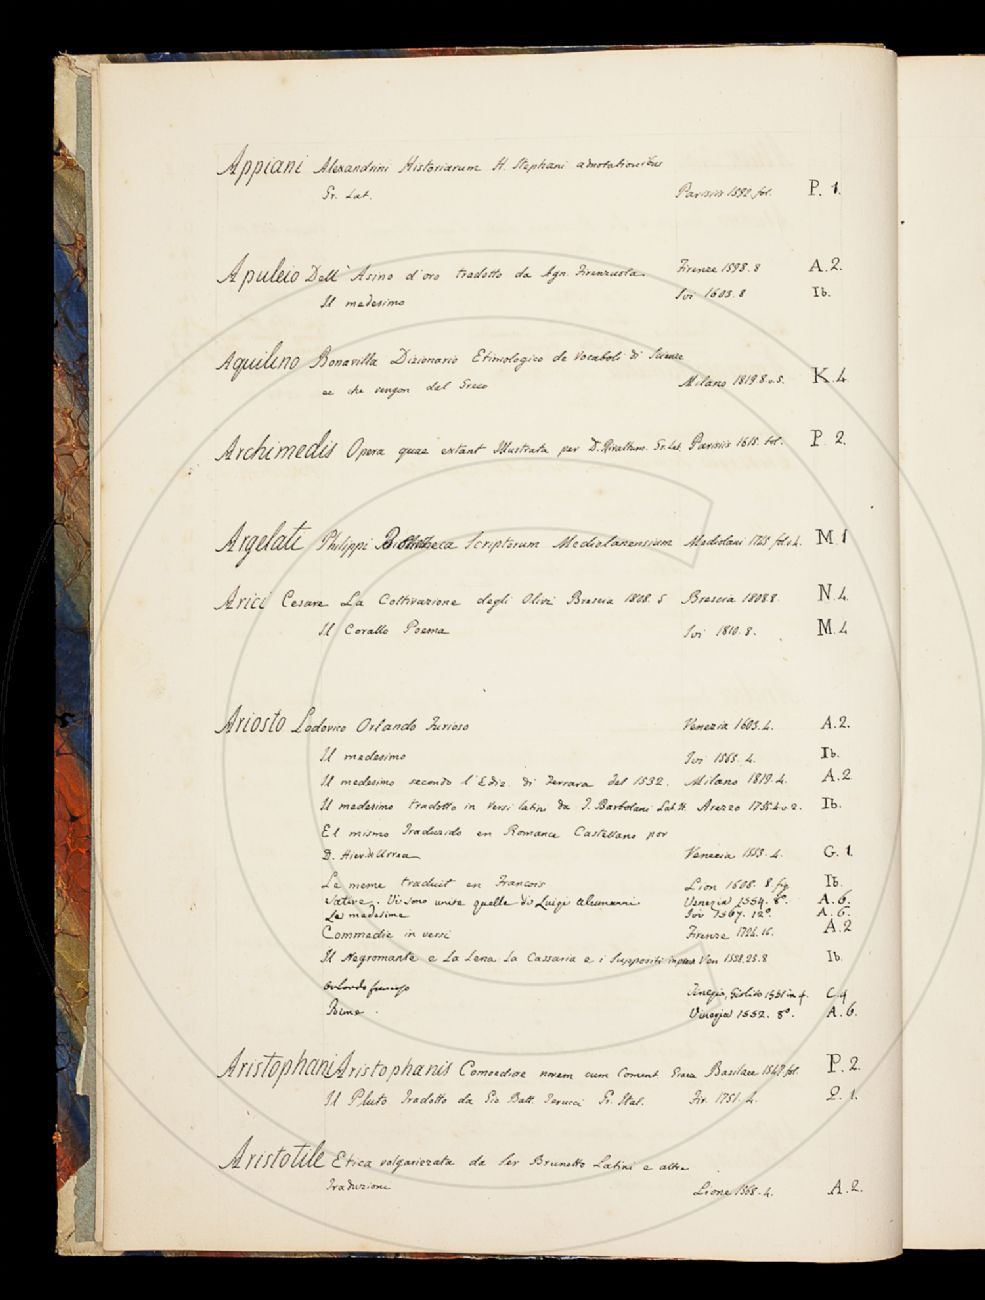 Appiani Alexandrini Historiarum H. Stephani adnotationibus
Gr. Lat. Parisiis 1592. fol. P. 1.
Apuleio Dell' Asino d'oro tradotto da Agn. Firenzuola. Firenze 1598. 8 A. 2.
Il medesimo Ivi 1603. 8 Ib.
Aquilino Bonavilla Dizionario Etimologico de Vocaboli di Scienze
ec che vengon dal Greco Milano 1819. 8. v. 5. K. 4
Archimedis Opera quae extant Illustrata per D. Rivaltum. Gr. Lat. Parisiis 1615. fol. P. 2.
Argelati Philippi Bibliotheca Scriptorum Mediolanensium Mediolani 1745 fol. v. 4. M. 1
Arici Cesare La Coltivazione degli Olivi Brescia 1808. 5 Brescia 1808 8. N. 4
Il Corallo Poema Ivi 1810. 8. M. 4
Ariosto Lodovico Orlando Furioso Venezia 1603. 4. A. 2.
Il medesimo Ivi 1565. 4. Ib.
Il medesimo secondo l'Ediz. di Ferrara del 1532. Milano 1819. 4. A. 2
Il medesimo tradotto in versi latini da T. Barbolani Lat. It. Arezzo 1756. v. 2. Ib.
El mismo Traduzido en Romance Castellano por
D. Hier. de Urrea Venecia 1553. 4. G. 1.
Le meme traduit en Francois Lion 1608. 8. fig Ib.
Satire. Vi sono unite quelle di Luigi Alemanni Venezia 1554. 8º. A. 6.
Le medesime Ivi 1567. 12º. A. 6.
Commedie in versi Firenze 1724. 16. A. 2
Il Negromante e La Lena La Cassaria e i Suppositi in prosa Ven 1538. 25. 8 Ib.
Orlando furioso Vinegia, Giolito 1551 in 4. C. 4
Rime. Vinegia 1552. 8º. A. 6.
Aristophani Aristophanis Comoediae novem cum Coment Graeca Basileae 1547 fol. P. 2.
Il Pluto Tradotto da Gio Batt. Terucci Gr. Ital. Fir. 1751. 4. Q. 1.
Aristotile Etica volgarizzata da Ser Brunetto Latini e altre
Traduzione Lione 1568. 4. A. 2.